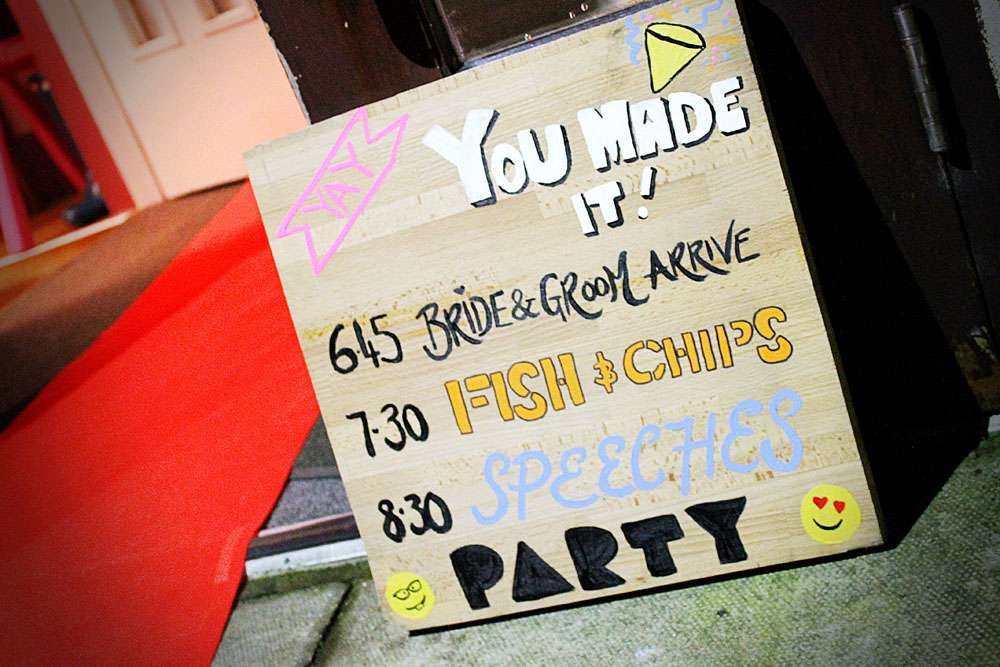 YAY
YOU MADE
IT!
6.45 BRIDE & GROOM ARRIVE
7.30 FISH & CHIPS
8.30 SPEECHES
PARTY